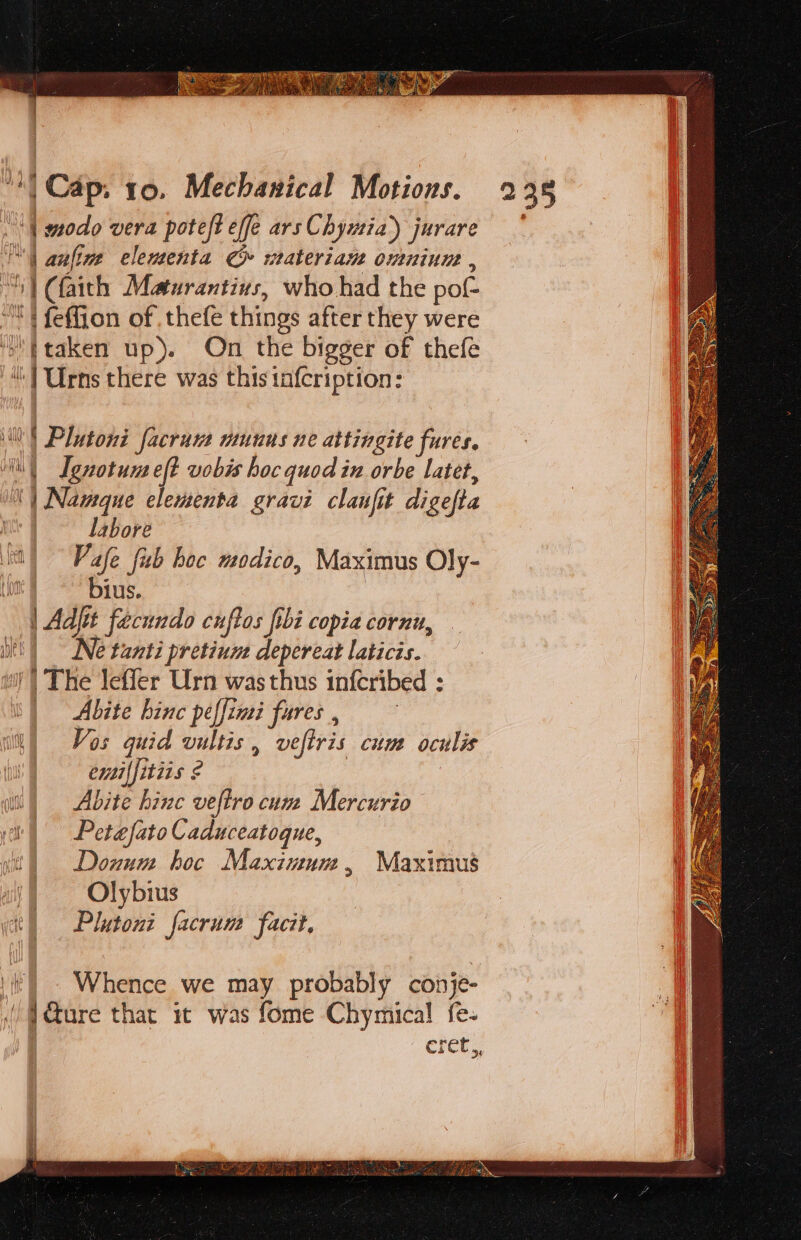 Cap. 10. Mechanical Motions. 235
modo vera poteſt eſſe ars Chymia) jurare
auſim elementa & materiam omnium,
(faith Maturantius, who had the poſ-
ſeſſion of theſe things after they were
taken up). On the bigger of theſe
Urns there was this inſcription:
Plutoni ſacrum munus ne attingite fures.
Ignotum eſt vobis hoc quod in orbe latet,
Namque elementa gravi clauſit digeſta
labore
Vaſe ſub hoc modico, Maximus Oly-
bius.
Adſit fecundo cuſtos ſibi copia cornu,
Ne tanti pretium depereat laticis.
The leſſer Urn was thus inſcribed:
Abite hinc peſſimi fures,
Vos quid vultis, veſtris cum oculis
emiſſitiis?
Abite hinc veſtro cum Mercurio
Petaſato Caduceatoque,
Donum hoc Maximum, Maximus
Olybius
Plutoni ſacrum facit.
Whence we may probably conje-
cture that it was ſome Chymical ſe-
cret,